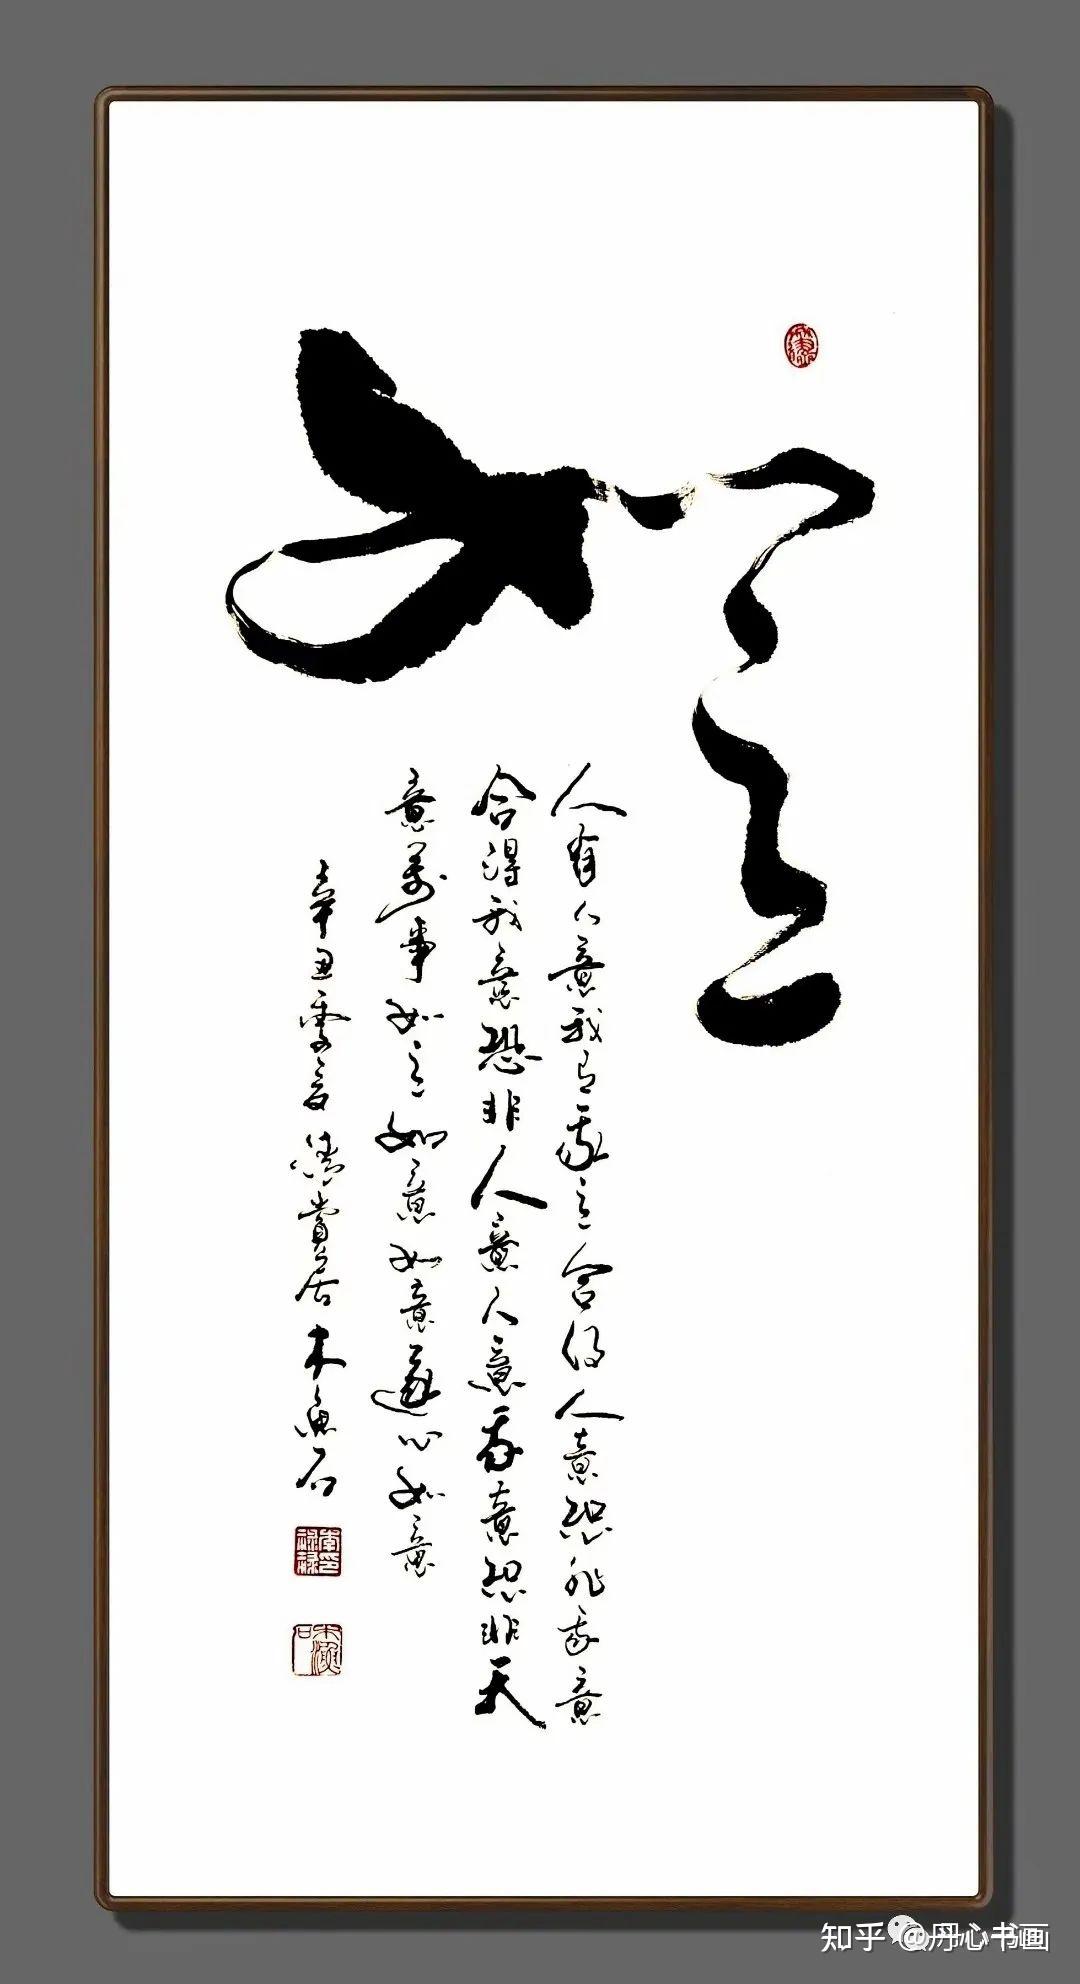 如意
人有人意我有我意合得人意恐非我意
合得我意恐非人意人意我意恐非天
意萬事如意如意如意遂心如意
辛丑賞居木魚石
知乎 @丹心书画